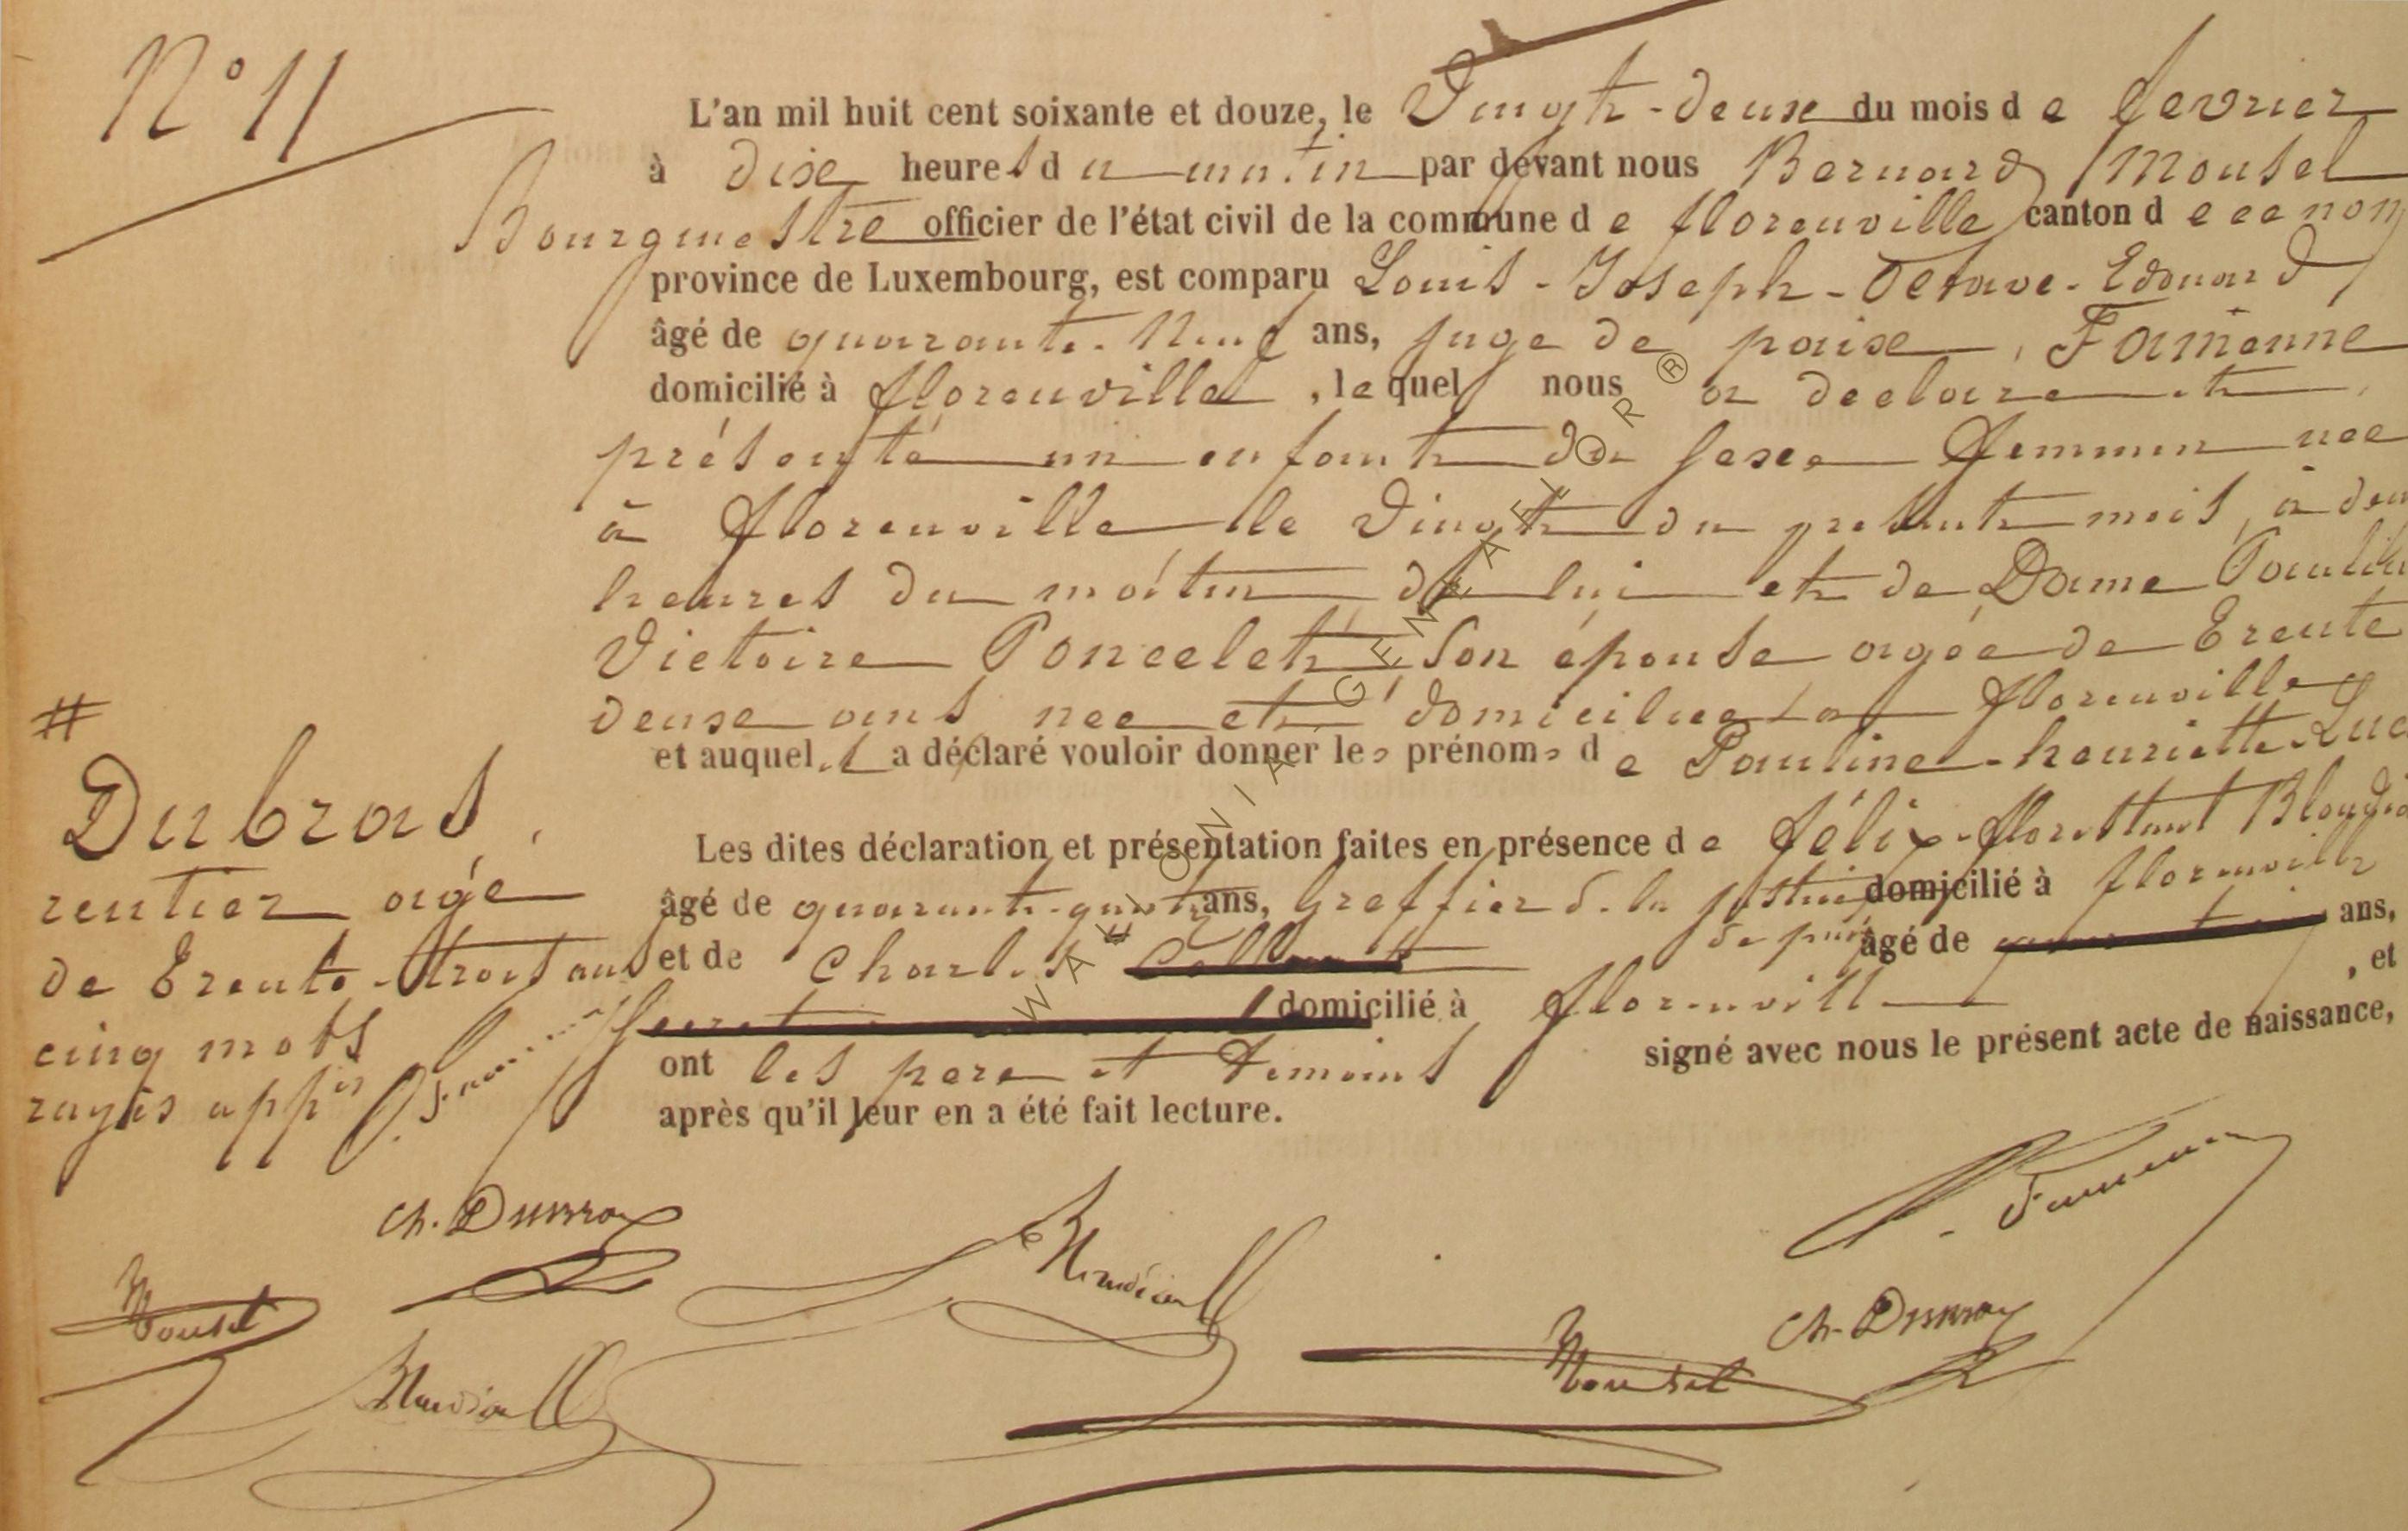 N° 11
L'an mil huit cent soixante et douze, le Vingt-deux du mois de fevrier
à dix heures du matin par devant nous Bernard Mousel
Bourgmestre officier de l'état civil de la commune de florenville canton de ee nom
province de Luxembourg, est comparu Louis-Joseph-Octave-Edouard
âgé de quarante-neuf ans, juge de paix, Famenne
domicilié à florenville, lequel nous a déclaré et
présenté un enfant du sexe feminin née
à florenville le vingt du présent mois, à deux
heures du matin de lui et de Dame Pauline
Victoire Poncelet son épouse agée de trente
deux ans née et domiciliée à florenville
et auquel il a déclaré vouloir donner les prénoms de Pauline-henriette-Luc
Les dites déclaration et présentation faites en présence de félix-floristant
âgé de ans, Greffier de la justice de paix domicilié à florenville
et de Charles # âgé de ans,
domicilié à florenville, et
ont les père et témoins signé avec nous le présent acte de naissance,
après qu'il leur en a été fait lecture.
#
Dubras,
rentier agé
de trente-trois ans
cinq mots
rayés app
Ch. Dubras
Mousel
Mousel
Ch. Dubras
WALLONIA GENEAFLOR ®